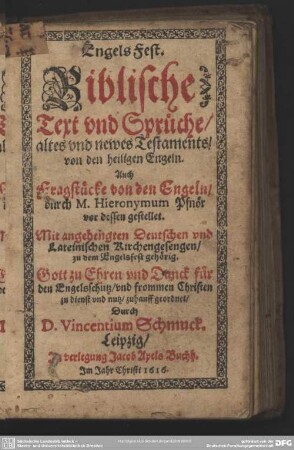 Engels Fest.
Biblische
Text vnd Sprüche/
altes vnd newes Testaments/
von den heiligen Engeln.
Auch
Fragstücke von den Engeln/
durch M. Hieronymum Pfnör
vor dessen gestellet.
Mit angehengten Deutschen vnd
Lateinischen Kirchengesengen/
zu dem Engelsfest gehörig.
Gott zu Ehren vnd Danck für
den Engelschütz/vnd frommen Christen
zu dienst vnd nutz/zuhauff geordnet/
Durch
D. Vincentium Schmuck.
Leipzig/
In verlegung Jacob Apels Buchh.
Im Jahr Christi 1616.